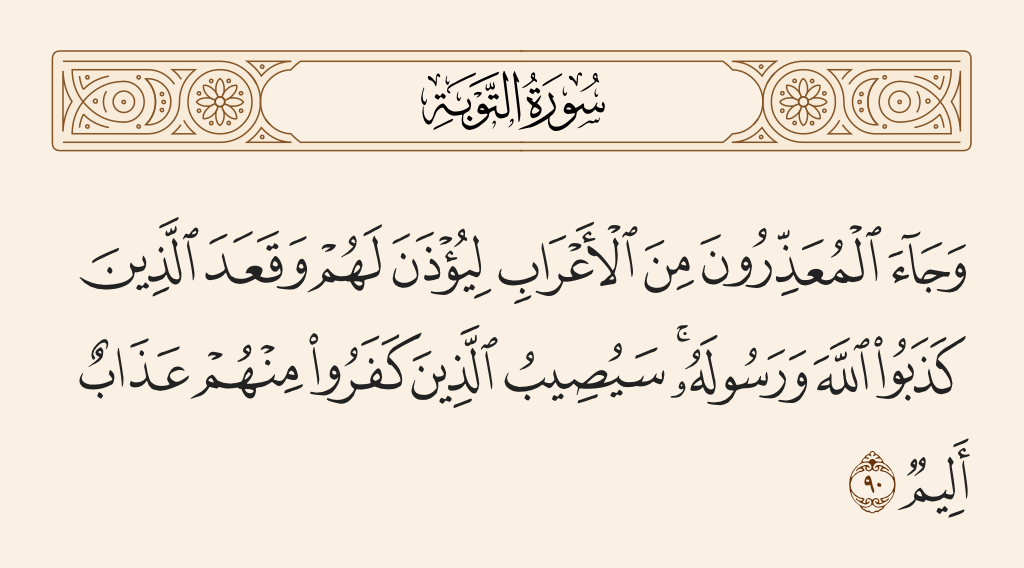 سُورَةُ التَّوْبَةِ
وَجَآءَ ٱلْمُعَذِّرُونَ مِنَ ٱلْأَعْرَابِ لِيُؤْذَنَ لَهُمْ وَقَعَدَ ٱلَّذِينَ
كَذَبُوا۟ ٱللَّهَ وَرَسُولَهُۥ ۚ سَيُصِيبُ ٱلَّذِينَ كَفَرُوا۟ مِنْهُمْ عَذَابٌ
أَلِيمٌ ٩٠